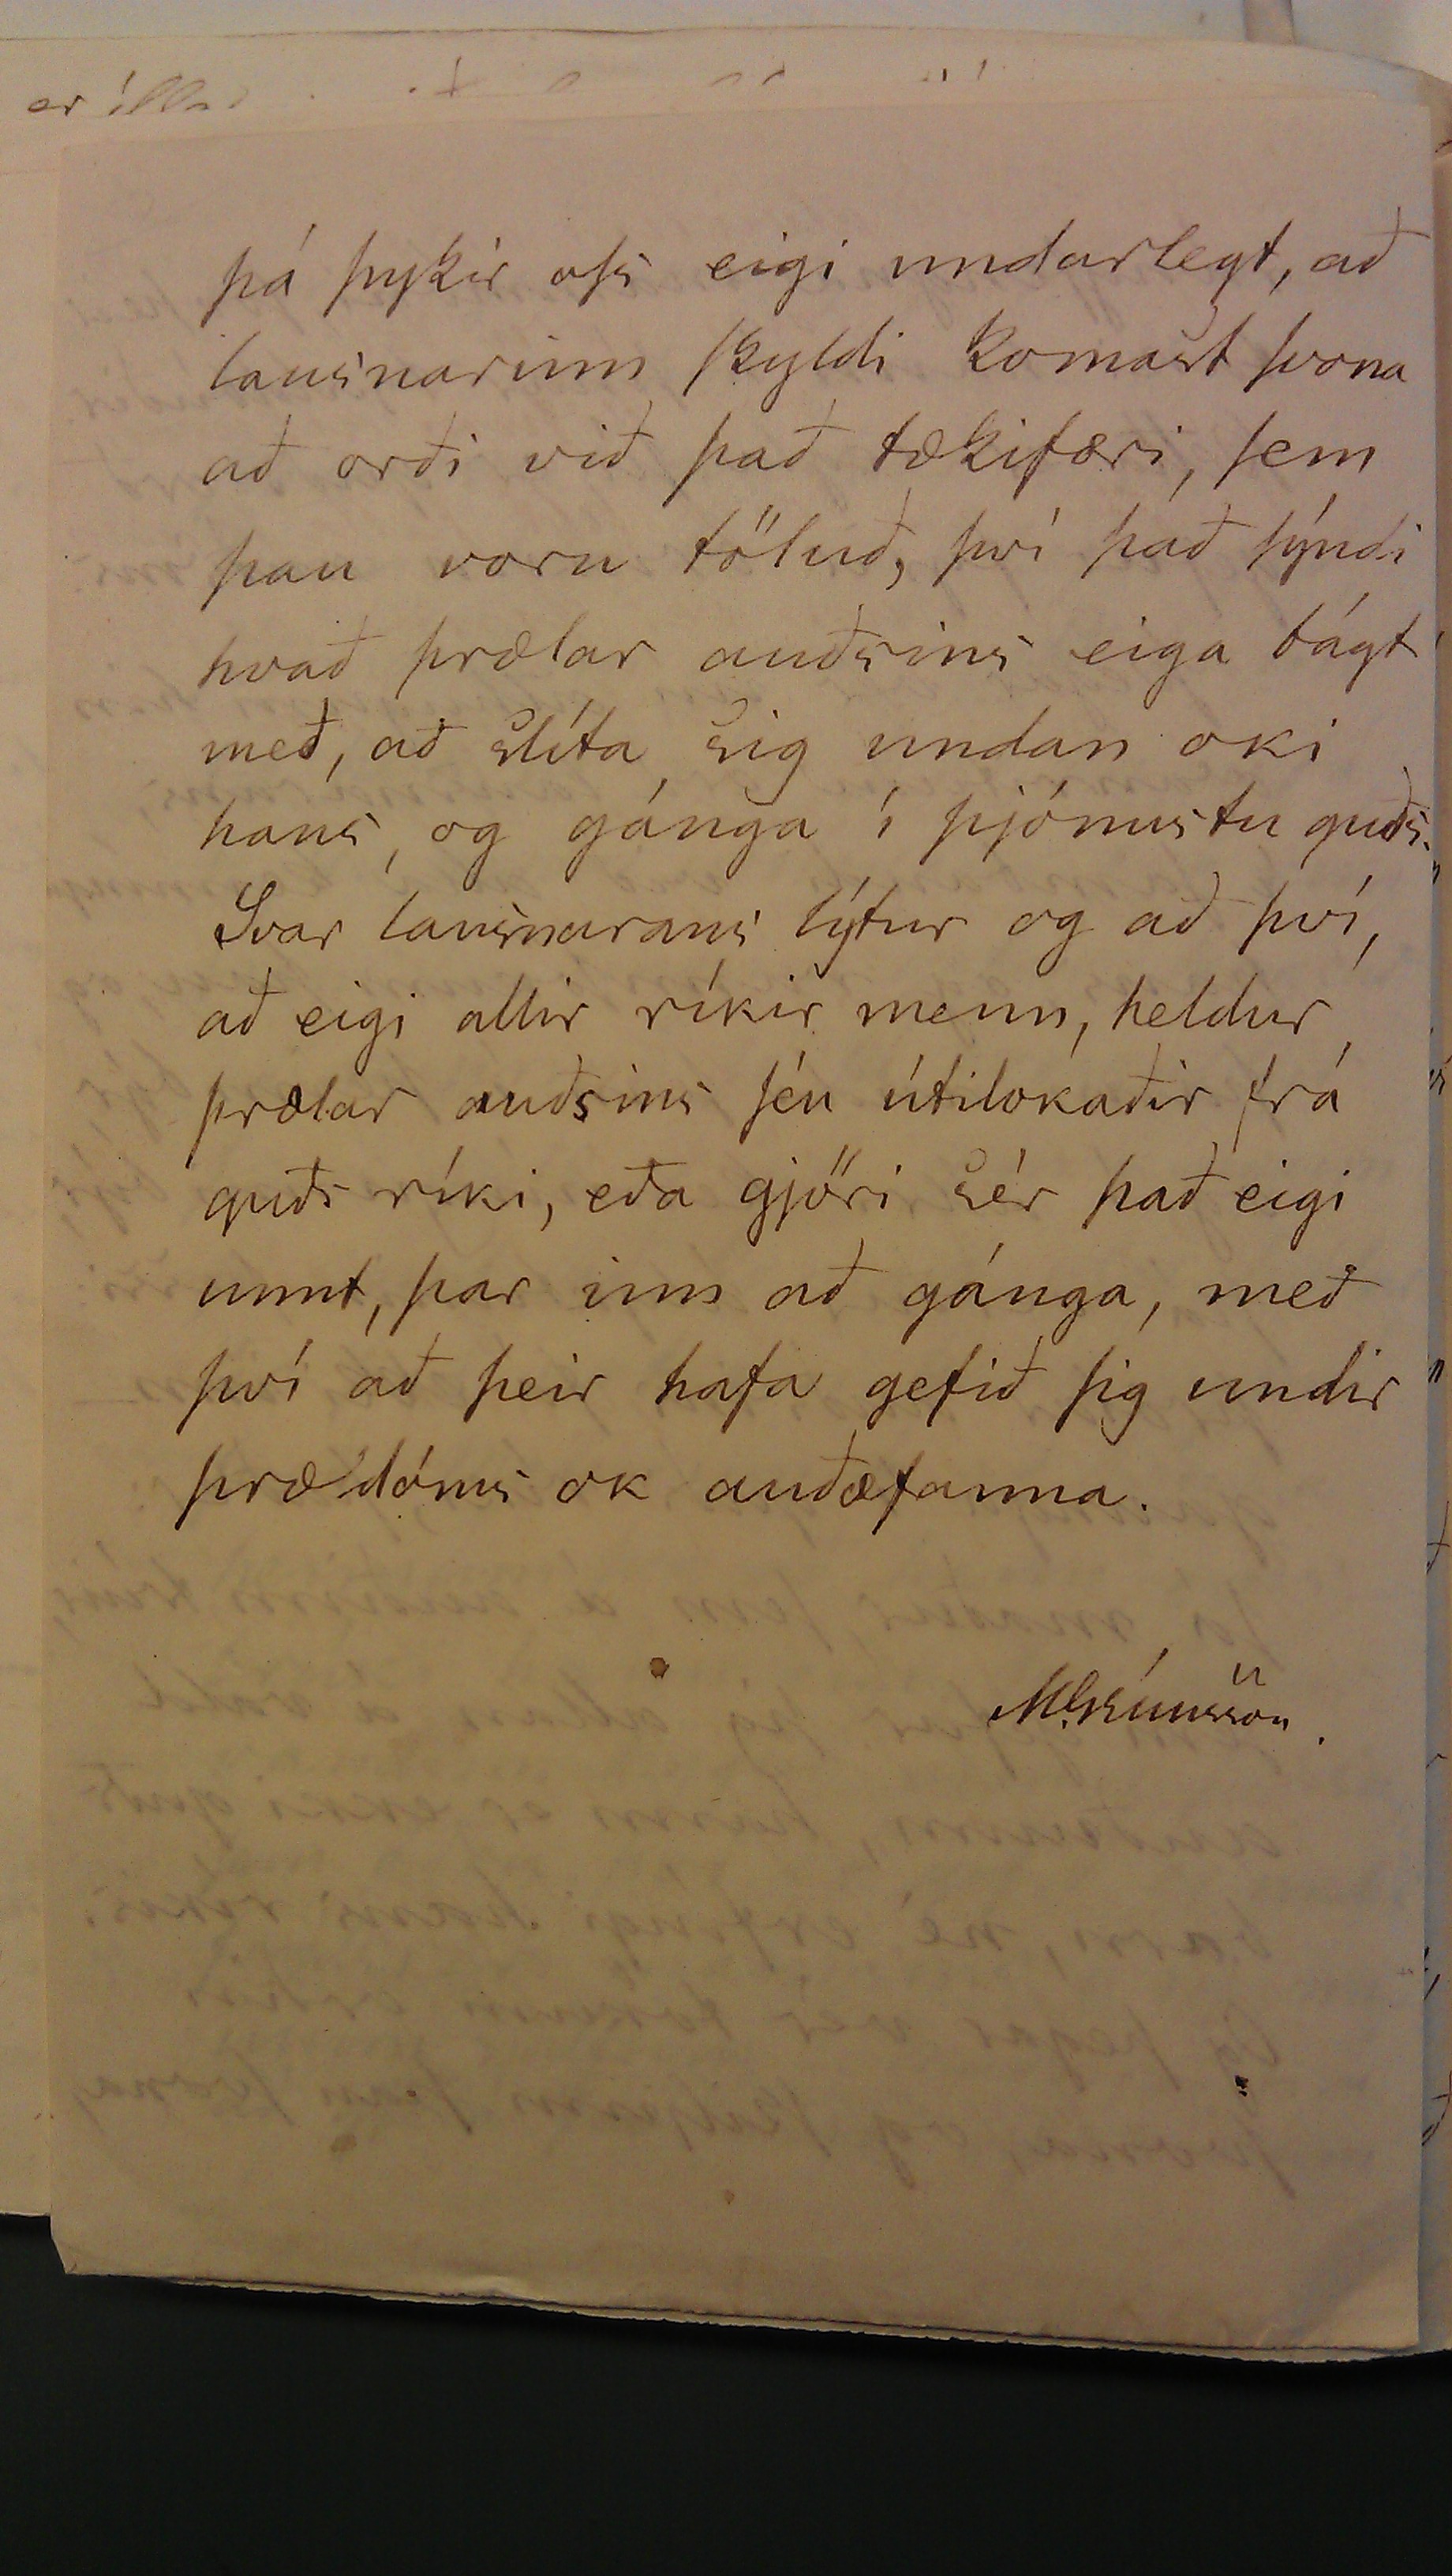 er illa
þá þykir oss eigi undarlegt, að
lausnarinn skyldi komast svona
að orði við það tækifæri, sem
þau voru töluð, því það sýndi
hvað þrælar auðsins eiga bágt
með, að slíta sig undan oki
hans, og gánga í þjónustu guðs.
Svar lausnarans lýtur og að því,
að eigi allir ríkir menn, heldur
þrælar auðsins séu útilokaðir frá
guðs ríki, eða gjöri sér það eigi
unnt, þar inn að gánga, með
því að þeir hafa gefið sig undir
þrældóms ok auðæfanna.
M. Grímsson.